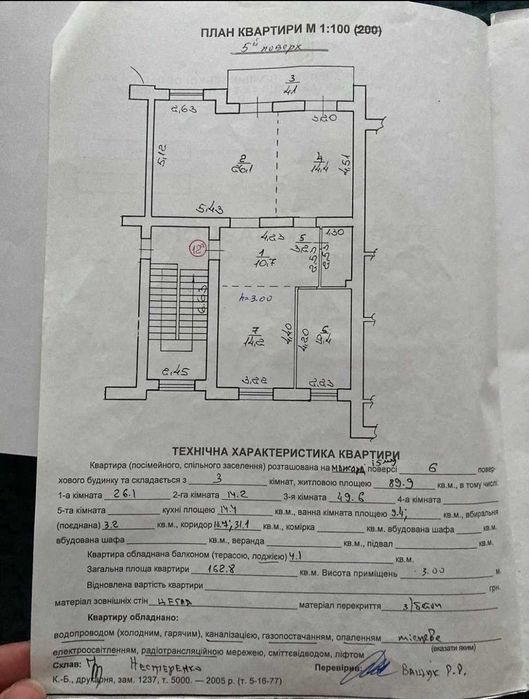 ПЛАН КВАРТИРИ М 1:100 (200)
5й поверх
3
4.1
2,63
3,20
5,12
2
26.1
4
14.4
4,51
5,43
4,23
5
3.2
1.30
12а
1
10.7
2,55
2,55
6.63
h=3.00
7
14.2
4,40
4,20
6
9.4
2.45
3,22
2,23
ТЕХНІЧНА ХАРАКТЕРИСТИКА КВАРТИРИ
Квартира (посімейного, спільного заселення) розташована на мансард 5му поверсі 6 повер-
хового будинку та складається з 3 кімнат, житловою площею 89.9 кв.м., в тому числі:
1-а кімната 26.1 2-га кімната 14.2 3-я кімната 49.6 4-а кімната
5-та кімната кухні площею 14.4 кв.м., ванна кімната 9.4; кв.м., вбиральня
(поєднана) 3.2 кв.м., коридор 10.7; 31.1 кв.м., комірка кв.м. вбудована шафа кв.м.
вбудована шафа кв.м., веранда кв.м., підвал кв.м.
Квартира обладнана балконом (терасою, лоджією) 4.1 кв.м.
Загальна площа квартири 162.8 кв.м. Висота приміщень 3.00 м.
Відновлена вартість квартири грн.
матеріал зовнішніх стін цегла матеріал перекриття з/бетон
Квартиру обладнано:
водопроводом (холодним, гарячим), каналізацією, газопостачанням, опаленням місцеве
(вказати яким)
електроосвітленням, радіотрансляційною мережею, сміттєвідводом, ліфтом
Склав: Нестеренко Перевірив: Ващук Р.Р.
К.-Б., друкарня, зам. 1237, т. 5000. — 2005 р. (т. 5-16-77)